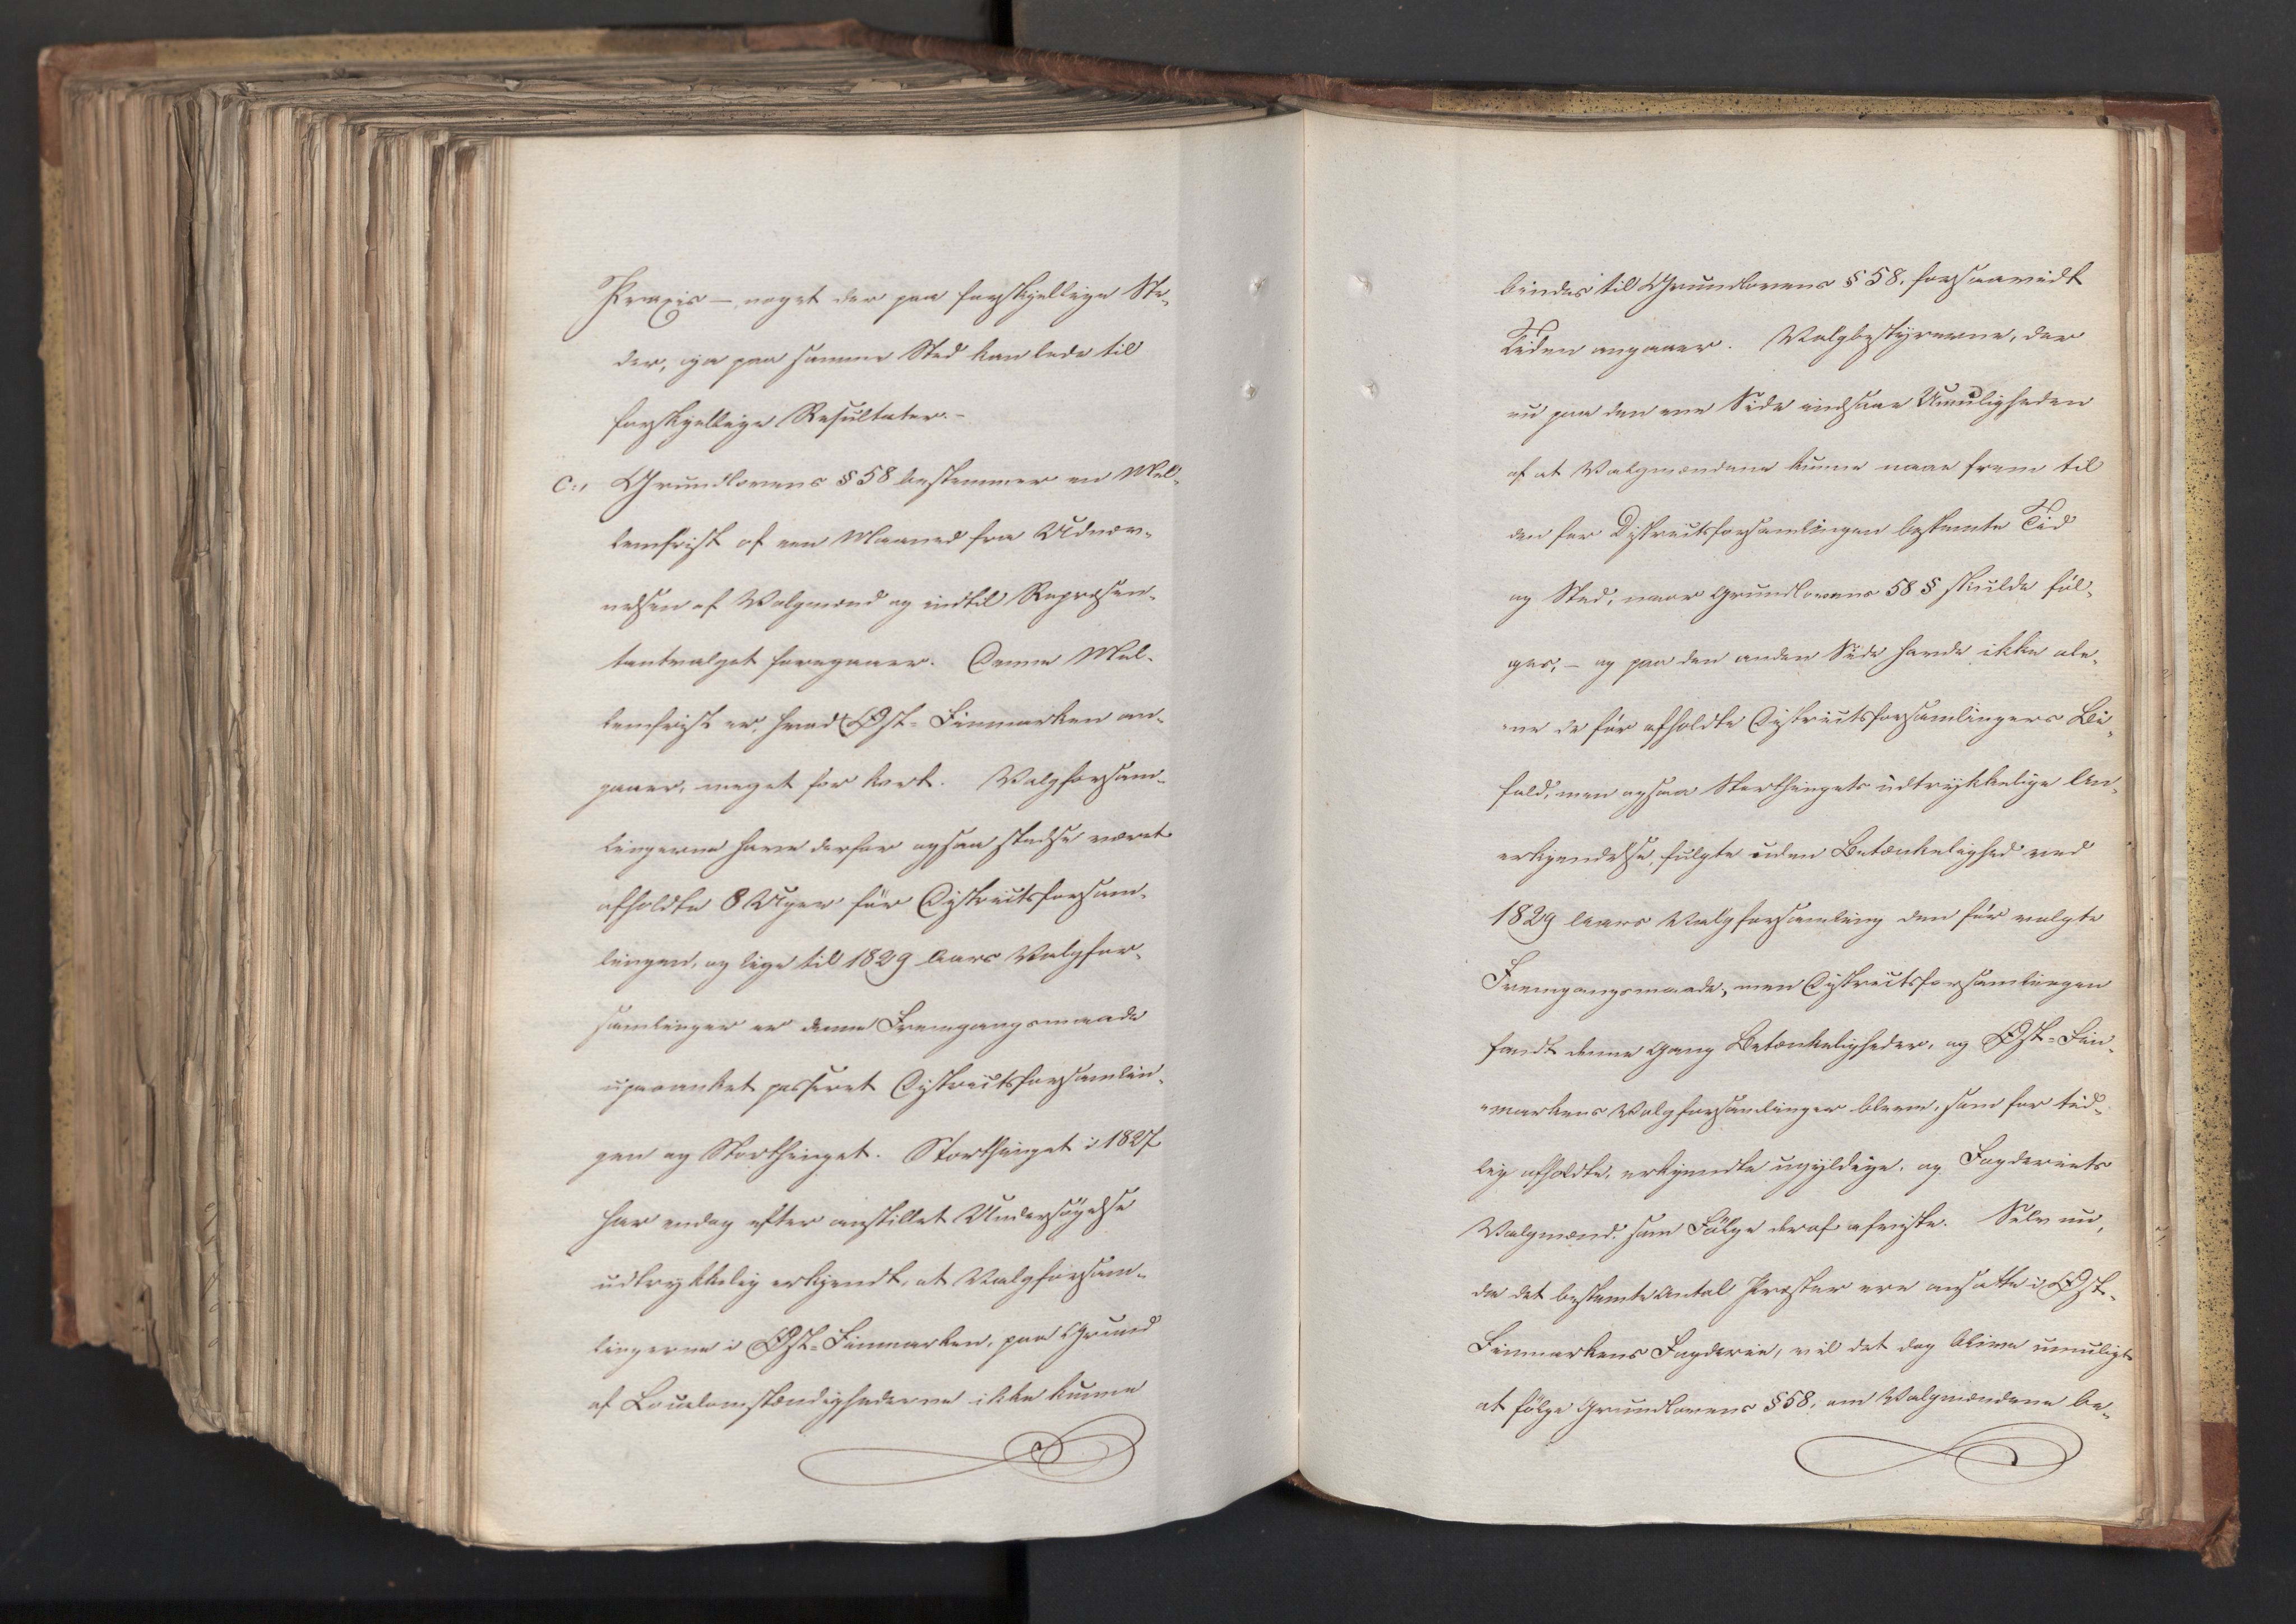 Praxis – noget der paa forskjellige Ste-
der, ja paa samme Sted kan lede til
forskjellige Resultater. –
C:, Grundlovens § 58 bestemmer en Mel-
lemfrist af een Maaned fra Udnæv-
nelsen af Valgmænd og indtil Repræsen-
tantvalget foregaaer. Denne Mel-
lemfrist er, hvad Øst-Finmarken an-
gaaer, meget for kort. Valgforsam-
lingerne have derfor ogsaa stedse været
afholdte 8 Uger før Districtsforsam-
lingen, og lige til 1829 Aars Valgfor-
samlinger er denne Fremgangsmaade
upaaanket passeret Districtsforsamlin-
gen og Storthinget. Storthinget i 1827
har endog efter anstillet Undersøgelse
udtrykkelig erkjendt, at Valgforsam-
lingerne i Øst-Finmarken, paa Grund
af Localomstændighederne ikke kunne
bindes til Grundlovens § 58, forsaavidt
Tiden angaaer. Valgbestyrerne, der
nu paa den ene Side indsaae Umuligheden
af at Valgmændene kunne naae frem til
den for Districtsforsamlingen bestemte Tid
og Sted, naar Grundlovens 58 § skulde føl-
ges, – og paa den anden Side havde ikke ale-
ne de før afholdte Districtsforsamlingers Bi-
fald, men ogsaa Storthingets udtrykkelige An-
erkjendelse, fulgte uden Betænkelighed ved
1829 Aars Valgforsamling den før valgte
Fremgangsmaade, men Districtsforsamlingen
fandt denne Gang Betænkeligheder, og Øst-Fin-
markens Valgforsamlinger bleve, som for tid-
lig afholdte, erkjendte ugyldige, og Fogderiets
Valgmænd, som Følge deraf afviiste. Selv nu,
da det bestemte Antal Præster ere ansatte i Øst-
Finmarkens Fogderie, vil det dog blive umuligt
at følge Grundlovens § 58, om Valgmændene be-